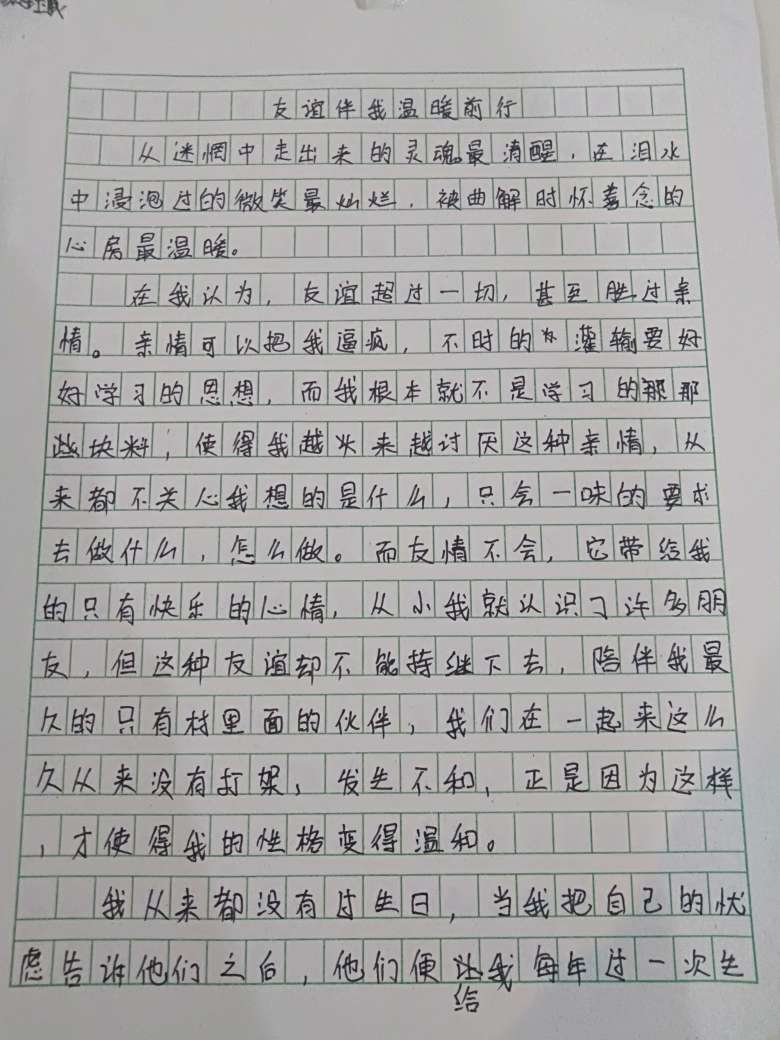 友谊伴我温暖前行
从迷惘中走出来的灵魂最清醒，在泪水
中浸泡过的微笑最灿烂，被曲解时怀善念的
心房最温暖。
在我认为，友谊超过一切，甚至胜过亲
情。亲情可以把我逼疯，不时的灌输要好
好学习的思想，而我根本就不是学习的那那
些块料，使得我越来越讨厌这种亲情，从
来都不关心我想的是什么，只会一味的要求
去做什么，怎么做。而友情不会，它带给我
的只有快乐的心情，从小我就认识了许多朋
友，但这种友谊却不能持继下去，陪伴我最
久的只有村里面的伙伴，我们在一起来这么
久从来没有打架，发生不和，正是因为这样
，才使得我的性格变得温和。
我从来都没有过生日，当我把自己的忧
虑告诉他们之后，他们便我每年过一次生
给